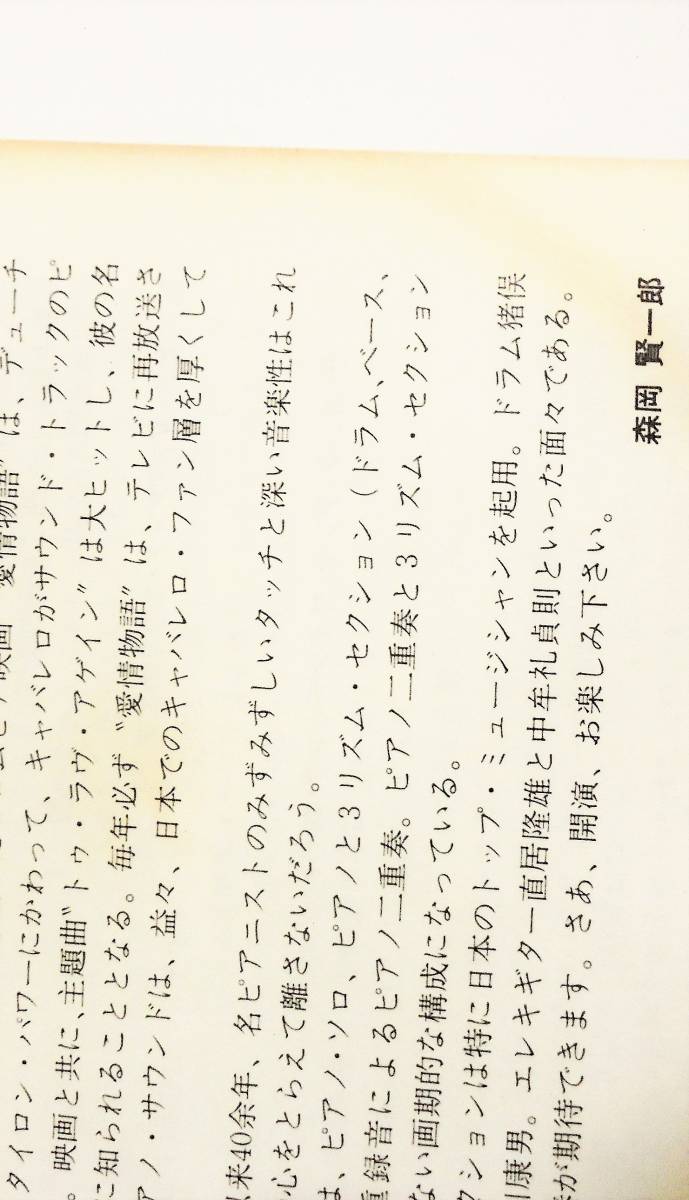 映画〝愛情物語〟は、デューチ
タイロン・パワーにかわって、キャバレロがサウンド・トラックのピ
。映画と共に、主題曲〝トゥ・ラヴ・アゲイン〟は大ヒットし、彼の名
に知られることとなる。毎年必ず〝愛情物語〟は、テレビに再放送さ
アノ・サウンドは、益々、日本でのキャバレロ・ファン層を厚くして
来40余年、名ピアニストのみずみずしいタッチと深い音楽性はこれ
心をとらえて離さないだろう。
は、ピアノ・ソロ、ピアノと3リズム・セクション（ドラム、ベース、
重録音によるピアノ二重奏。ピアノ二重奏と3リズム・セクション
ない画期的な構成になっている。
クションは特に日本のトップ・ミュージシャンを起用。ドラム猪俣
康男。エレキギター直居隆雄と中牟礼貞則といった面々である。
が期待できます。さあ、開演、お楽しみ下さい。
森岡 賢一郎